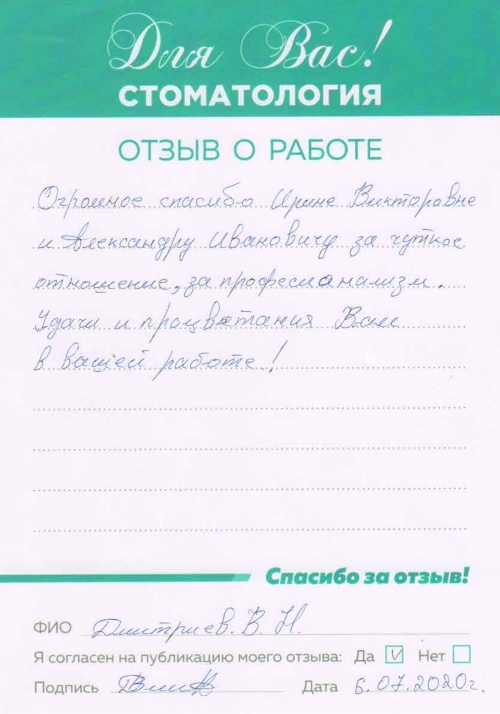 Для Вас!
СТОМАТОЛОГИЯ
ОТЗЫВ О РАБОТЕ
Огромное спасибо Ирине Викторовне
и Александру Ивановичу за чуткое
отношение, за професианализм.
Удачи и процветания Вам
в вашей работе!
Спасибо за отзыв!
ФИО Дмитриев. В. Н.
Я согласен на публикацию моего отзыва: Да ☑ Нет ☐
Подпись Дата 6.07.2020г.